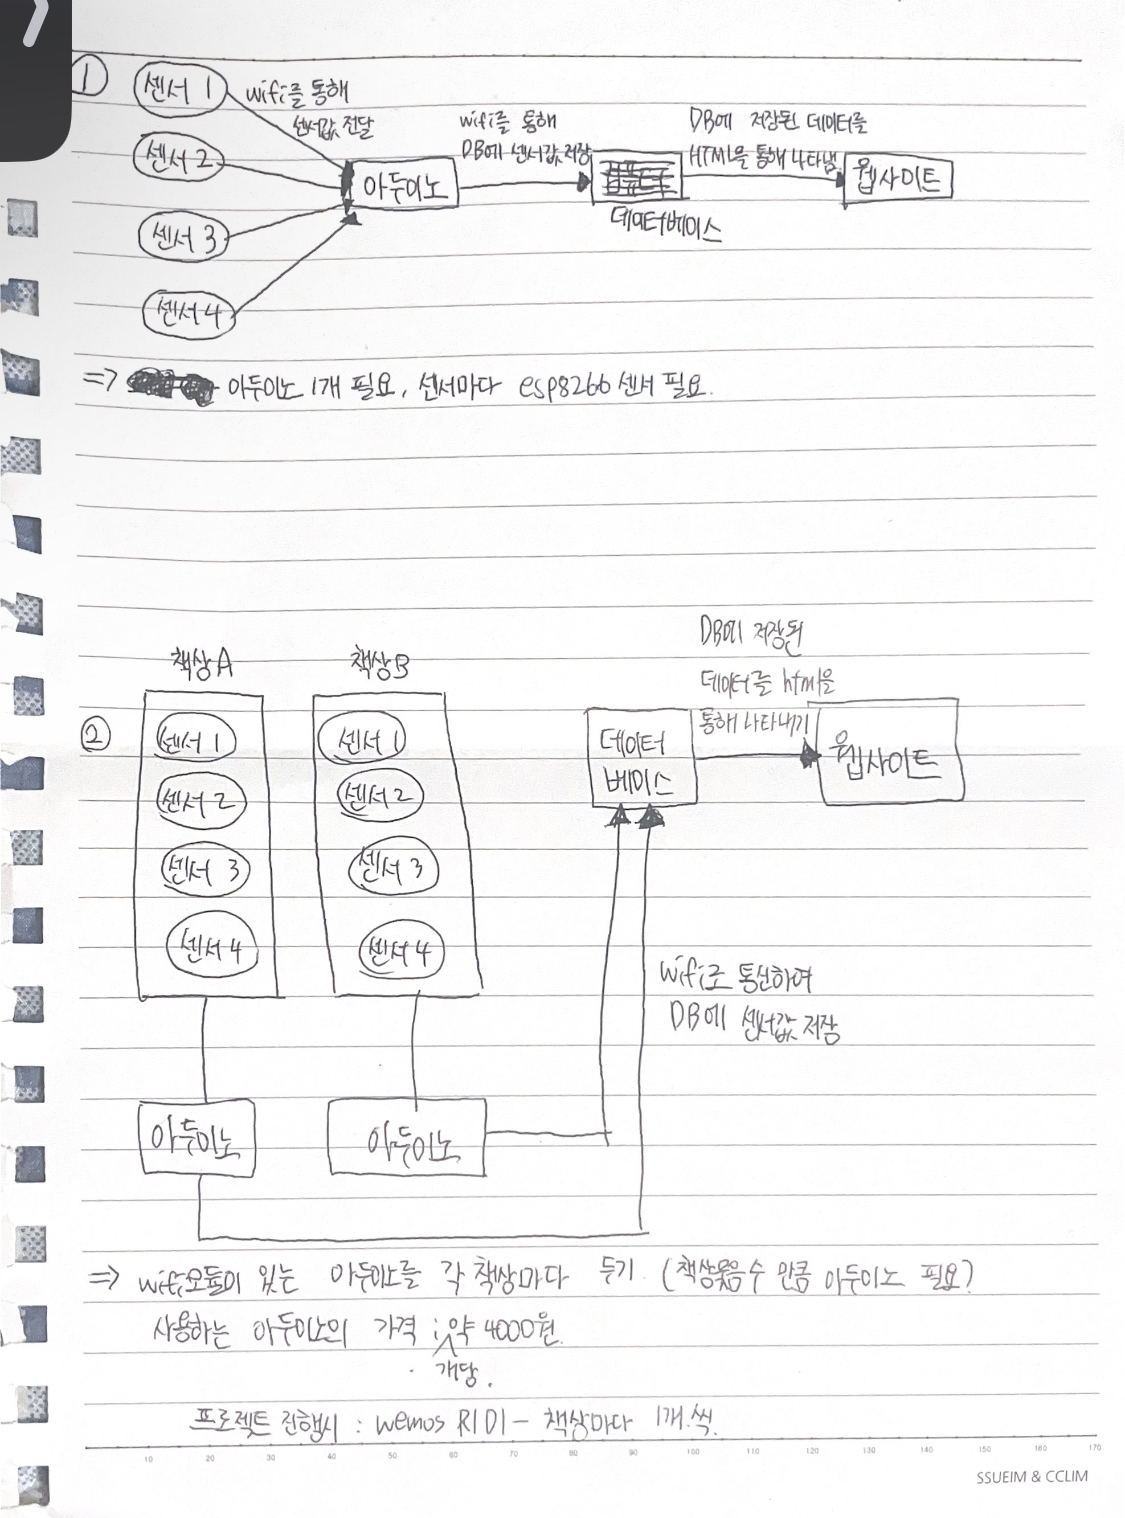 ①
센서 1
wifi를 통해
센서값 전달
센서 2
센서 3
센서 4
아두이노
wifi를 통해
DB에 센서값 저장
데이터베이스
DB에 저장된 데이터를
HTML을 통해 나타냄
웹사이트
=> 아두이노 1개 필요, 센서마다 esp8266 센서 필요.
②
책상A
센서 1
센서 2
센서 3
센서 4
아두이노
책상B
센서 1
센서 2
센서 3
센서 4
아두이노
데이터
베이스
DB에 저장된
데이터를 html을
통해 나타내기
웹사이트
wifi로 통신하여
DB에 센서값 저장
=> wifi모듈이 있는 아두이노를 각 책상마다 두기. (책상 수 만큼 아두이노 필요?
사용하는 아두이노의 가격 : 약 4000원.
개당.
프로젝트 진행시 : wemos R1D1 - 책상마다 1개.씩.
10 20 30 40 50 60 70 80 90 100 110 120 130 140 150 160 170
SSUEIM & CCLIM